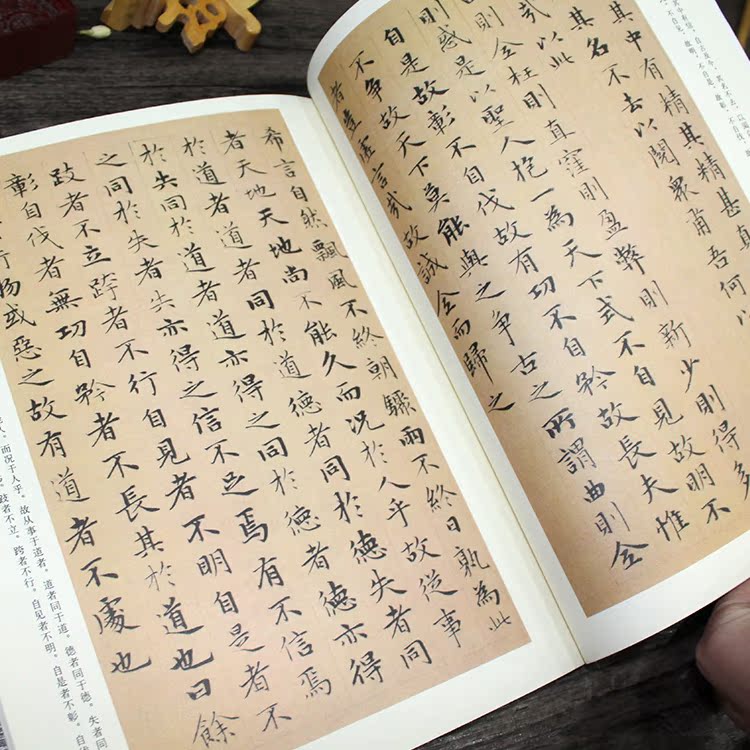 其中有精其精甚真
其名不去以閱衆甫吾何以
哉以此
則全枉則直窪則盈弊則新少則得多
則惑是以聖人抱一為天下式不自見故明不
自是故彰不自伐故有功不自矜故長夫惟
不争故天下莫能與之争古之所謂曲則全
者豈虛言哉故誠全而歸之
希言自然飄風不終朝驟雨不終日孰為此
者天地天地尚不能久而況於人乎故從事
於道者道者同於道德者同於德失者同
於失同於道者道亦得之同於德者德亦得
之同於失者失亦得之信不足焉有不信焉
跂者不立跨者不行自見者不明自是者不
彰自伐者無功自矜者不長其於道也曰餘
行物或惡之故有道者不處也
而况于人乎。故从事于道者。道者同于道。德者同于德。失者同
跂者不立。跨者不行。自见者不明。自是者不彰。自伐